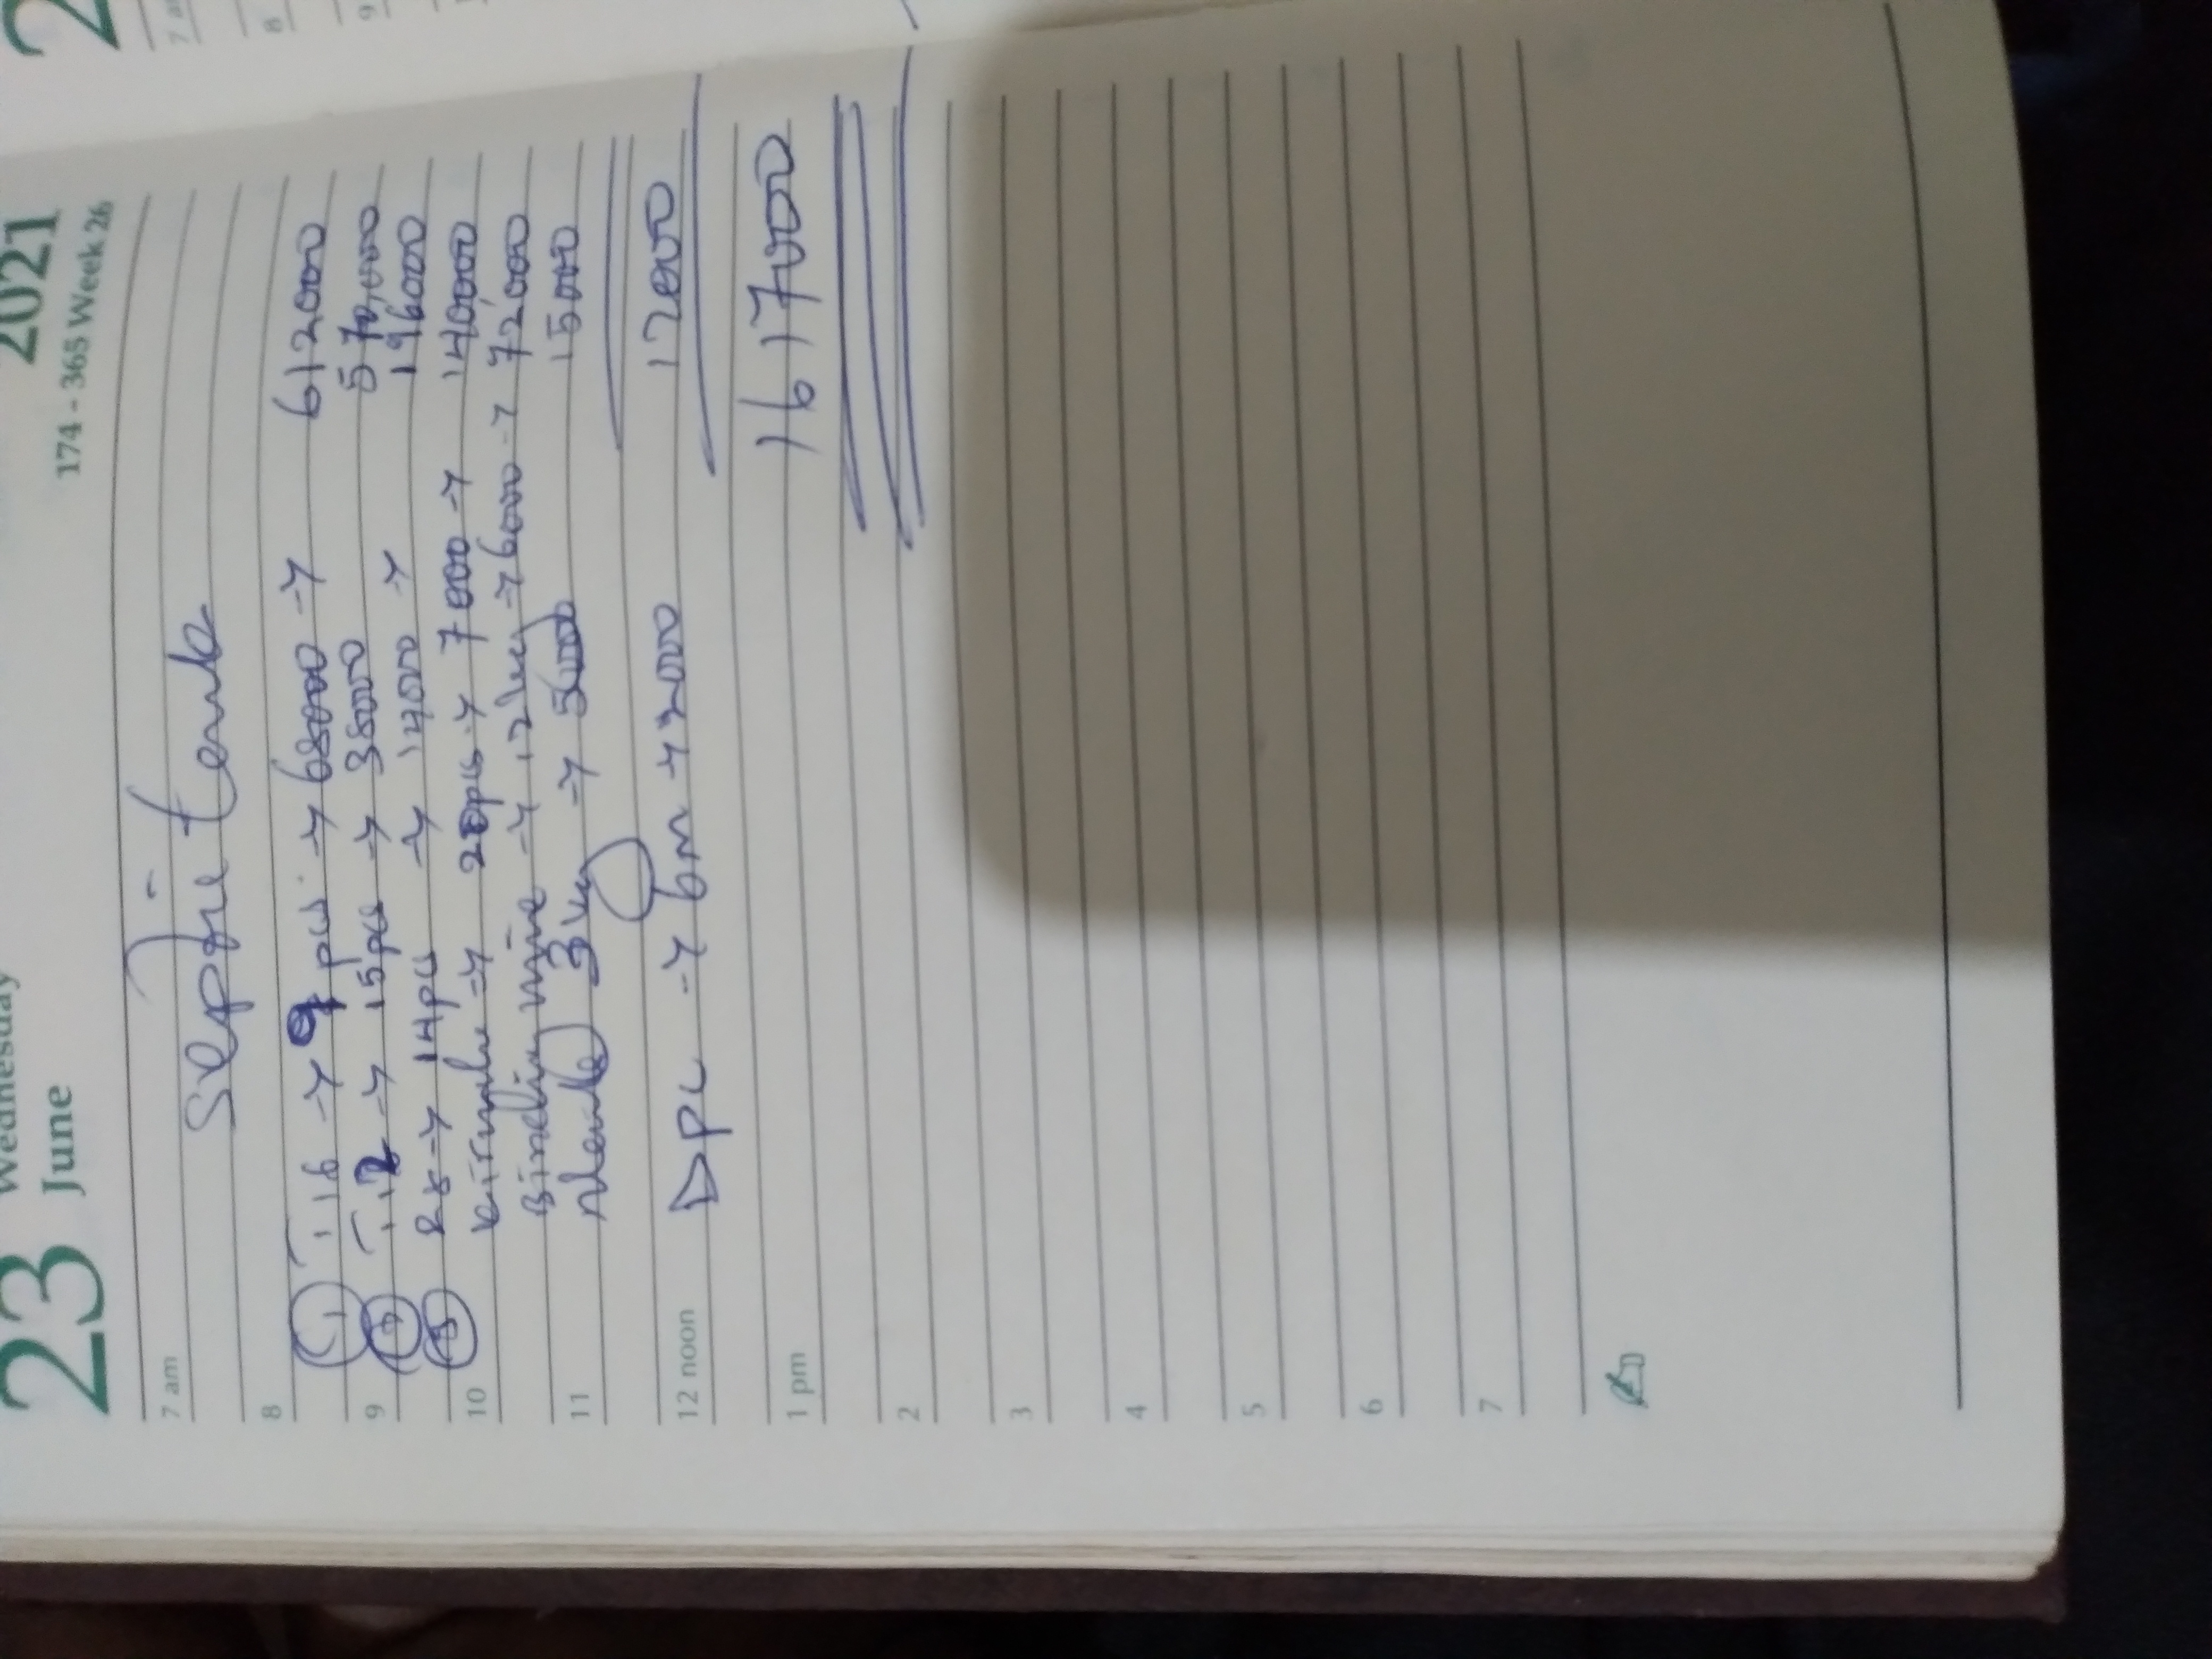 23 Wednesday June
2021
174 - 365 Week 26
7 am
Septic tank
8
1 T16 → 9 pcs → 68000 → 612000
9
T12 → 15pcs → 38000 570,000
3 R8 → 14pcs → 14000 → 196000
10
→ 20pcs → 7000 → 140000
Binding wire → 12kg → 6000 → 72000
11
3kg → 5000 15000
12 noon
DPC → 6m → 2000 12000
1617000
1 pm
2
3
4
5
6
7